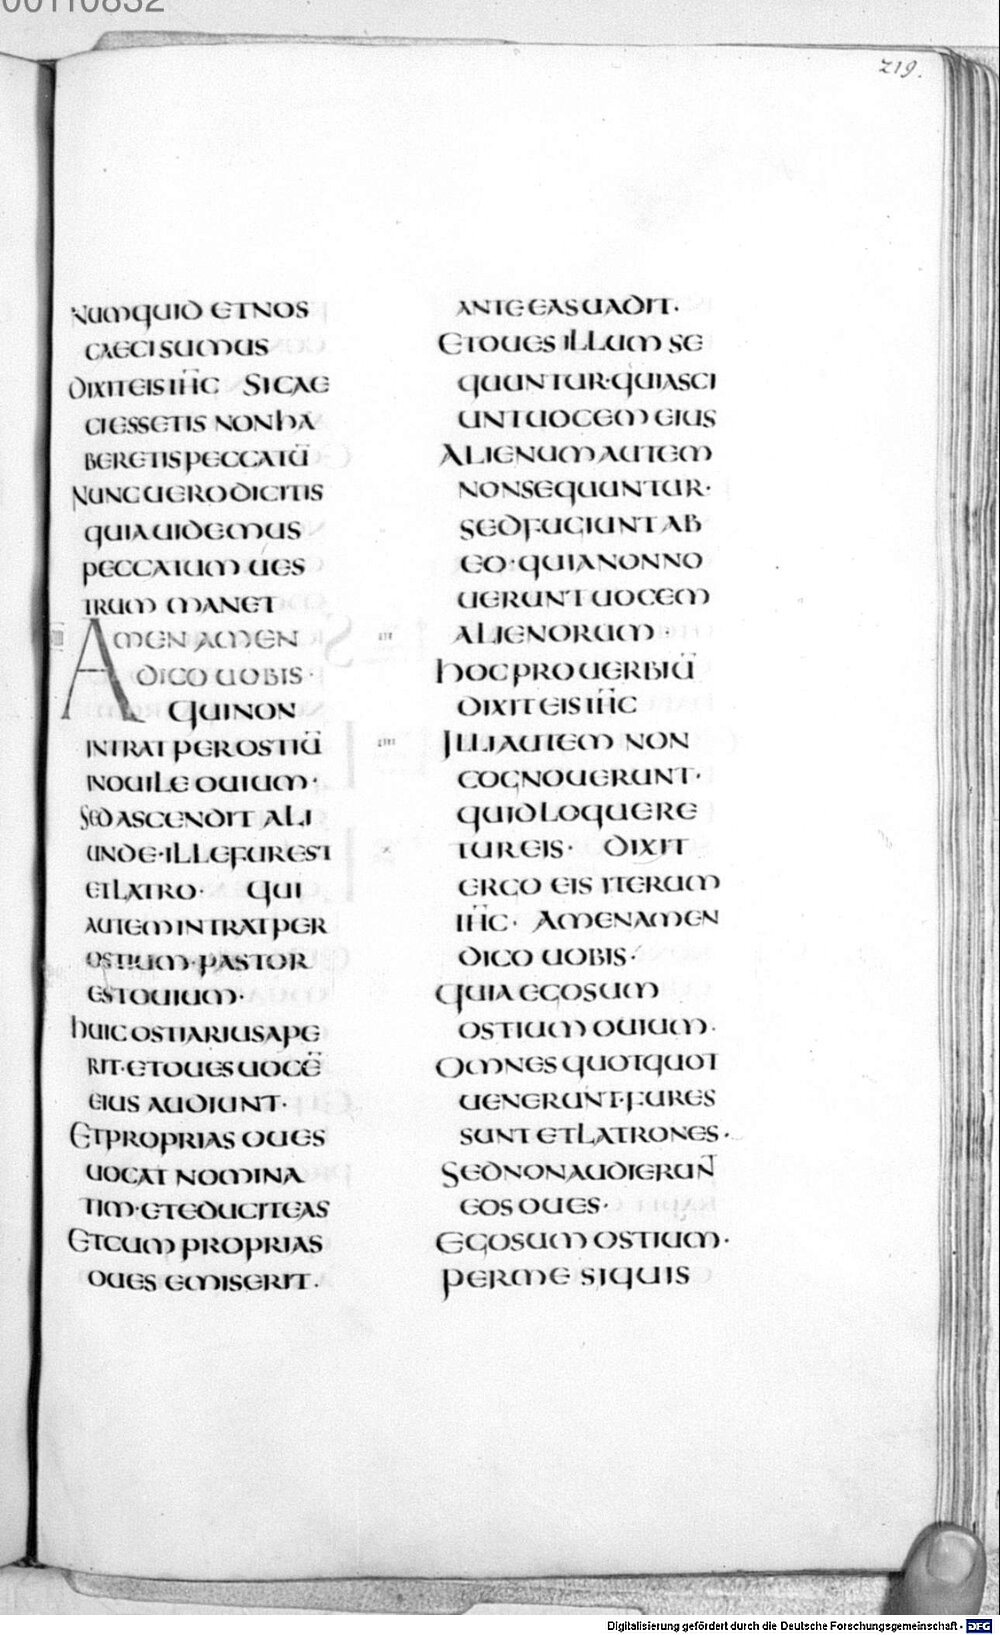 00110832
219.
NUMQUID ET NOS
CAECI SUMUS
DIXIT EIS IH̄C SI CAE
CI ESSETIS NON HA
BERETIS PECCATŪ
NUNC UERO DICITIS
QUIA UIDEMUS
PECCATUM UES
TRUM MANET
AMEN AMEN
DICO UOBIS·
QUI NON
INTRAT PER OSTIŪ
IN OUILE OUIUM·
SED ASCENDIT ALI
UNDE·ILLE FUR EST
ET LATRO· QUI
AUTEM INTRAT PER
OSTIUM·PASTOR
EST OUIUM·
HUIC OSTIARIUS APE
RIT·ET OUES UOCĒ
EIUS AUDIUNT·
ET PROPRIAS OUES
UOCAT NOMINA
TIM·ET EDUCIT EAS
ET CUM PROPRIAS
OUES EMISERIT·
ANTE EAS UADIT·
ET OUES ILLUM SE
QUUNTUR·QUIA SCI
UNT UOCEM EIUS
ALIENUM AUTEM
NON SEQUUNTUR·
SED FUGIUNT AB
EO·QUIA NON NO
UERUNT UOCEM
ALIENORUM·
HOC PROUERBIŪ
DIXIT EIS IH̄C
ILLI AUTEM NON
COGNOUERUNT·
QUID LOQUERE
TUR EIS· DIXIT
ERGO EIS ITERUM
IH̄C· AMEN AMEN
DICO UOBIS·
QUIA EGO SUM
OSTIUM OUIUM·
OMNES QUOTQUOT
UENERUNT·FURES
SUNT ET LATRONES·
SED NON AUDIERUN̄
EOS OUES·
EGO SUM OSTIUM·
PER ME SI QUIS
Digitalisierung gefördert durch die Deutsche Forschungsgemeinschaft - DFG